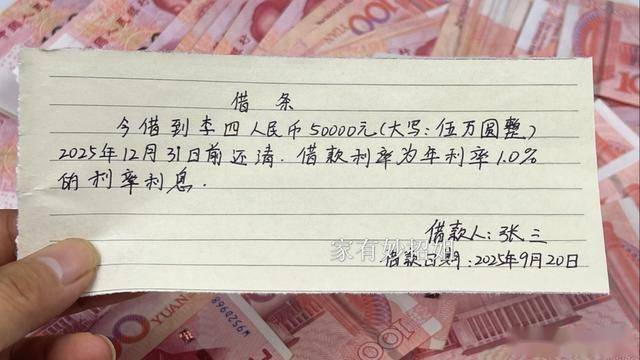 借条
今借到李四人民币50000元(大写:伍万圆整)
2025年12月31日前还请.借款利率为年利率1.0%
的利率利息.
借款人:张三
家有妙招姐
借款日期:2025年9月20日
100
YUAN
W9520968
100